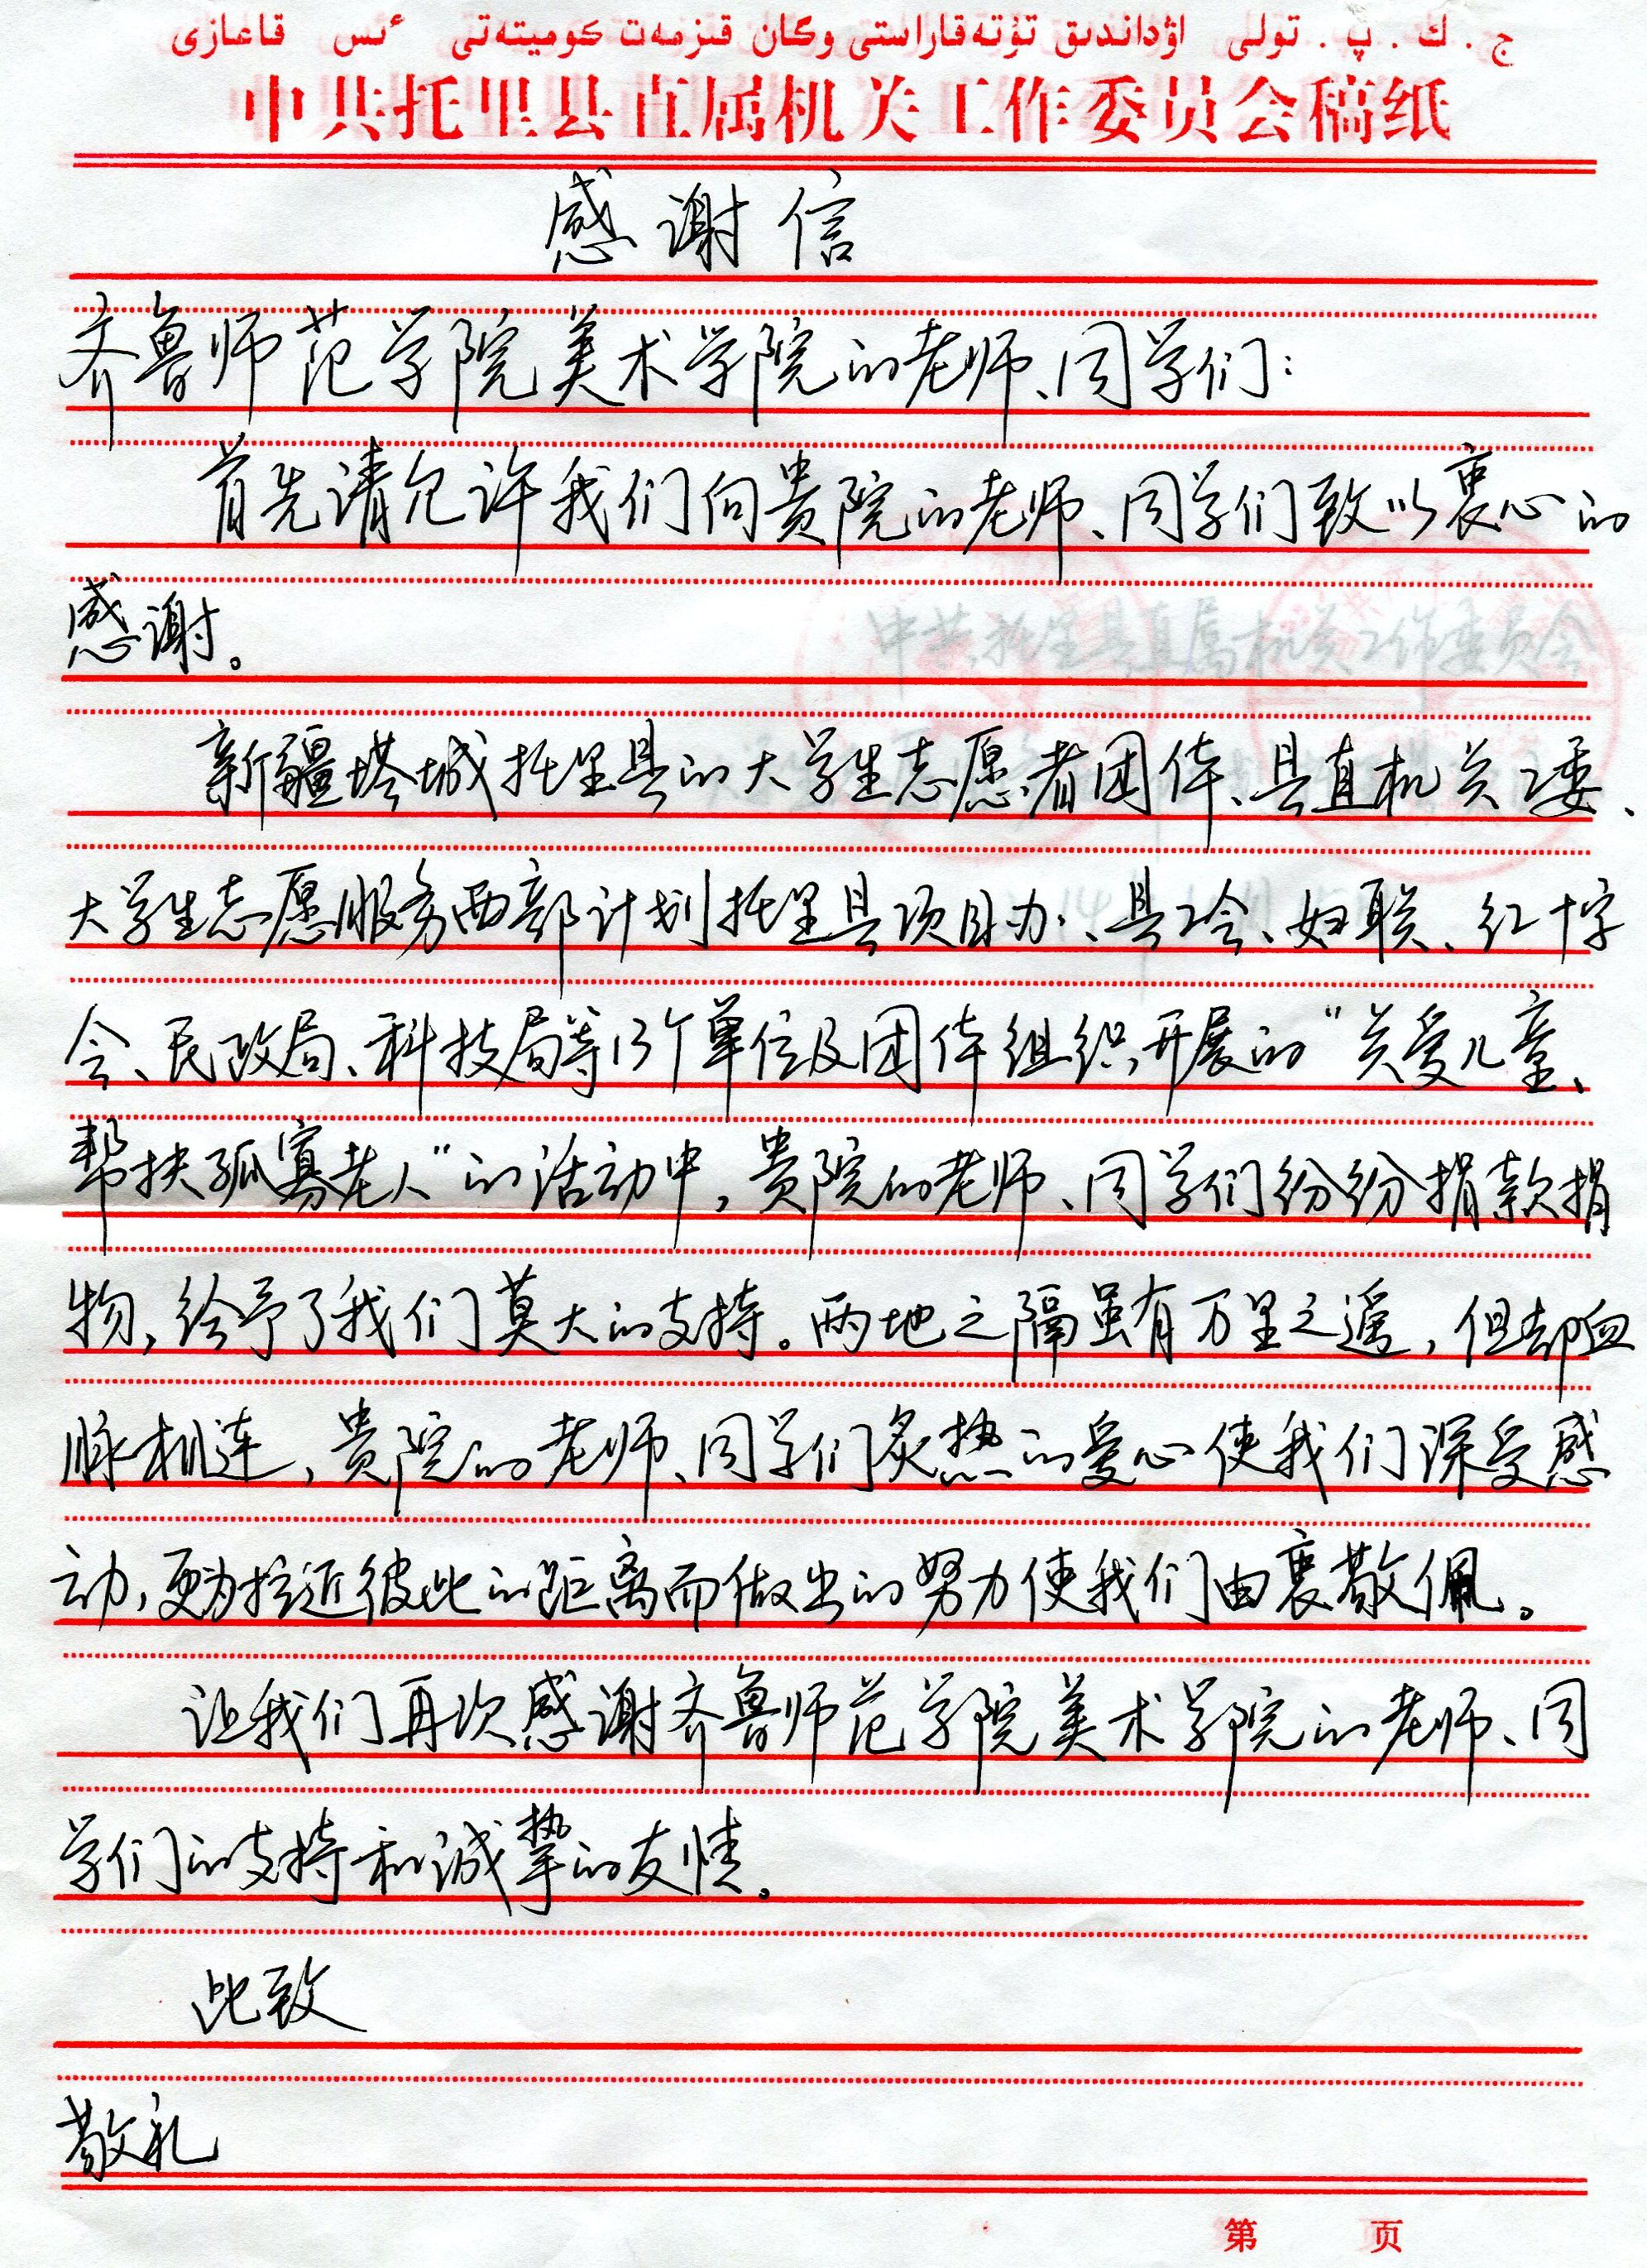 ج . ك . پ . تولى اۋداندىق تۋتەقاراستى ورگان قىزمەت كوميتەتى ٴىس قاعازى
中共托里县直属机关工作委员会稿纸
感谢信
齐鲁师范学院美术学院的老师、同学们：
首先请允许我们向贵院的老师、同学们致以衷心的
感谢。
中共托里县直属机关工作委员会
新疆塔城托里县的大学生志愿者团体、县直机关工委、
大学生志愿服务西部计划托里县项目办、县工会、妇联、红十字
会、民政局、科技局等13个单位及团体组织开展的“关爱儿童、
帮扶孤寡老人”的活动中，贵院的老师、同学们纷纷捐款捐
物，给予了我们莫大的支持。两地之隔虽有万里之遥，但却血
脉相连，贵院的老师、同学们炙热的爱心使我们深受感
动，更为拉近彼此的距离而做出的努力使我们由衷敬佩。
让我们再次感谢齐鲁师范学院美术学院的老师、同
学们的支持和诚挚的友情。
此致
敬礼
第 页